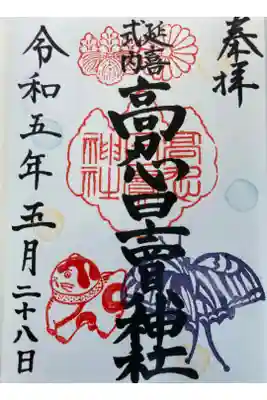 奉拝
延喜
式内
高忍日賣神社
高忍
神社
令和五年五月二十八日